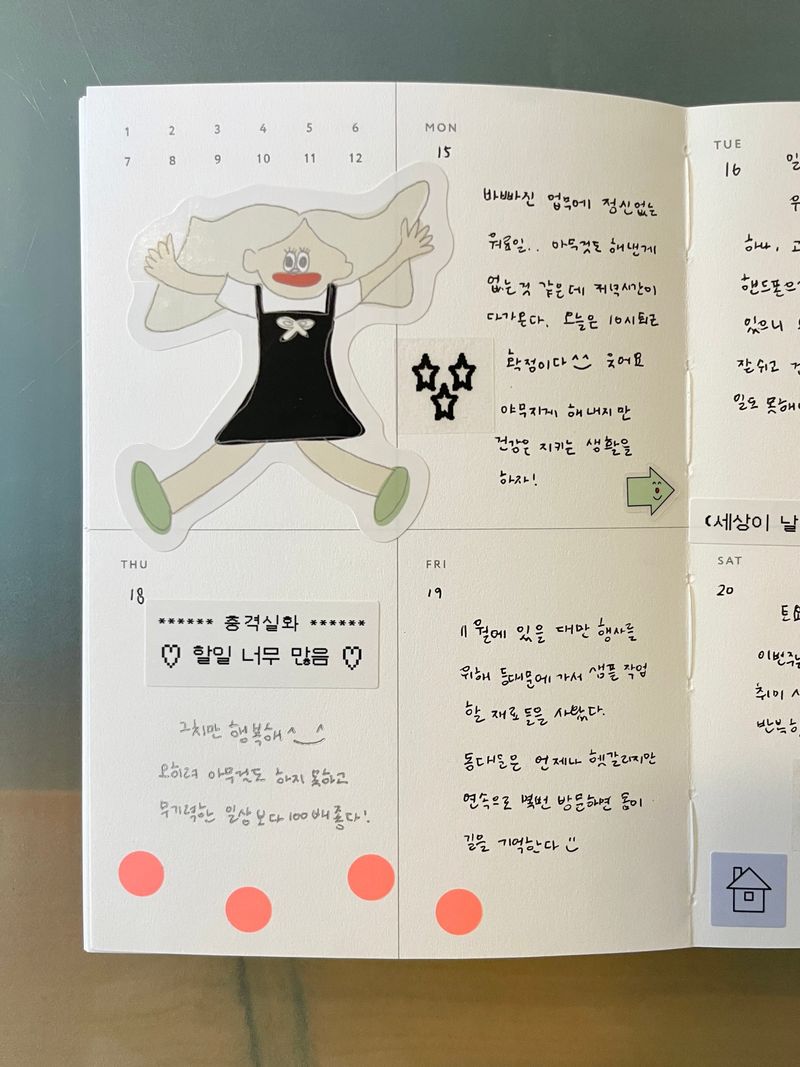 1 2 3 4 5 6
7 8 9 10 11 12
MON
15
바빠진 업무에 정신없는
월요일.. 아무것도 해낸게
없는것 같은데 저녁시간이
다가온다. 오늘은 10시퇴근
확정이다^^ 웃어요
야무지게 해내지만
건강은 지키는 생활을
하자!
TUE
16
일
하나, 고
핸드폰으
있으니
잘쉬고
일도 못해
(세상이 날
THU
18
****** 충격실화 ******
♡ 할일 너무 많음 ♡
그치만 행복해^_^
오히려 아무것도 하지 못하고
무기력한 일상보다 100배 좋다!
FRI
19
11월에 있을 대만 행사를
위해 동대문에 가서 샘플 작업
할 재료들을 사왔다.
동대문은 언제나 헷갈리지만
연속으로 몇번 방문하면 몸이
길을 기억한다
SAT
20
토요
이번주는
취미
반복하